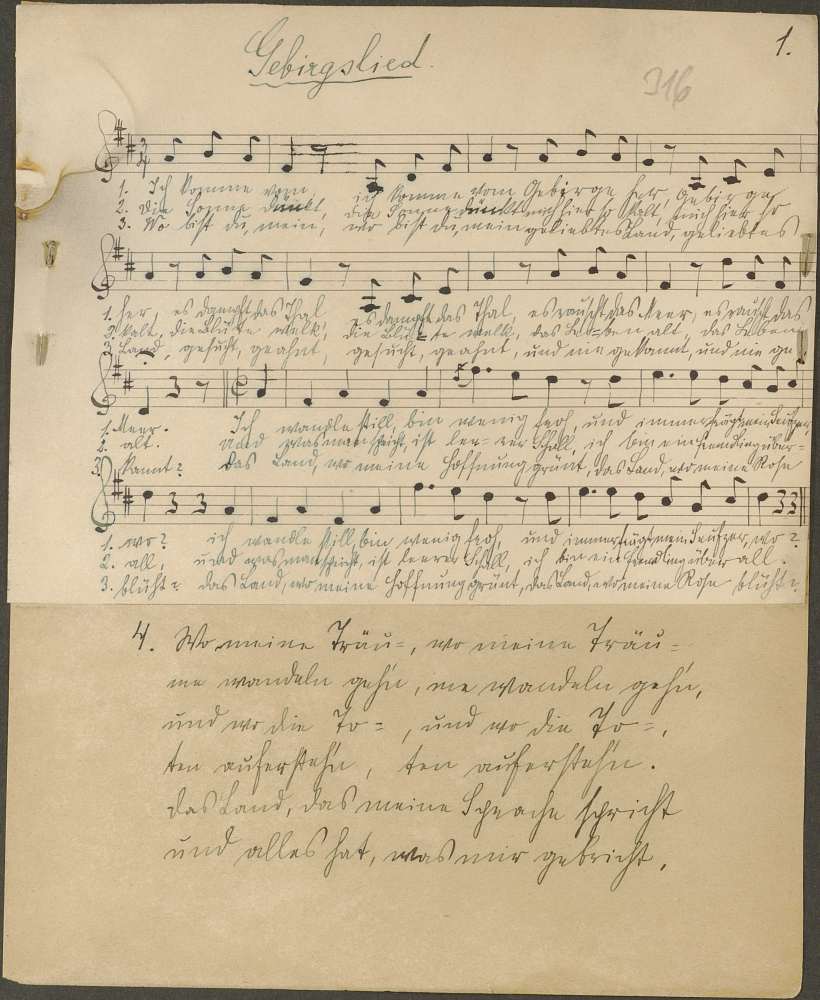 Gebirgslied.
1.
316
1. Ich komme vom, ich komme vom Gebirge her, Gebirge
2. Die Sonne dünkt, die Sonne dünkt mich hier so kalt, mich hier so
3. Wo bist du, mein, wo bist du, mein geliebtes Land, geliebtes
1. her, es dampft das Thal es dampft das Thal, es rauscht das Meer, es rauscht das
2. kalt, die Blüte welk, die Blü-te welk, das Le-ben alt, das Leben
3. Land, gesucht, geahnt, gesucht, geahnt, und nie gekannt, und nie ge
1. Meer. Ich wandle still, bin wenig froh, und immer frägt mein Seufzer,
2. alt. und was man spricht, ist lee-rer Schall, ich bin ein Fremdling über-
3. kannt? das Land, wo meine Hoffnung grünt, das Land, wo meine Rose
1. wo? ich wandle still, bin wenig froh, und immer frägt mein Seufzer, wo?
2. all, und was man spricht, ist leerer Schall, ich bin ein Fremdling überall.
3. blüht? das Land, wo meine Hoffnung grünt, das Land, wo meine Rose blüht?
4. Wo meine Träu=, wo meine Träu=
me wandeln gehn, me wandeln gehn,
und wo die To=, und wo die To=,
ten auferstehn, ten auferstehn.
das Land, das meine Sprache spricht
und alles hat, was mir gebricht.